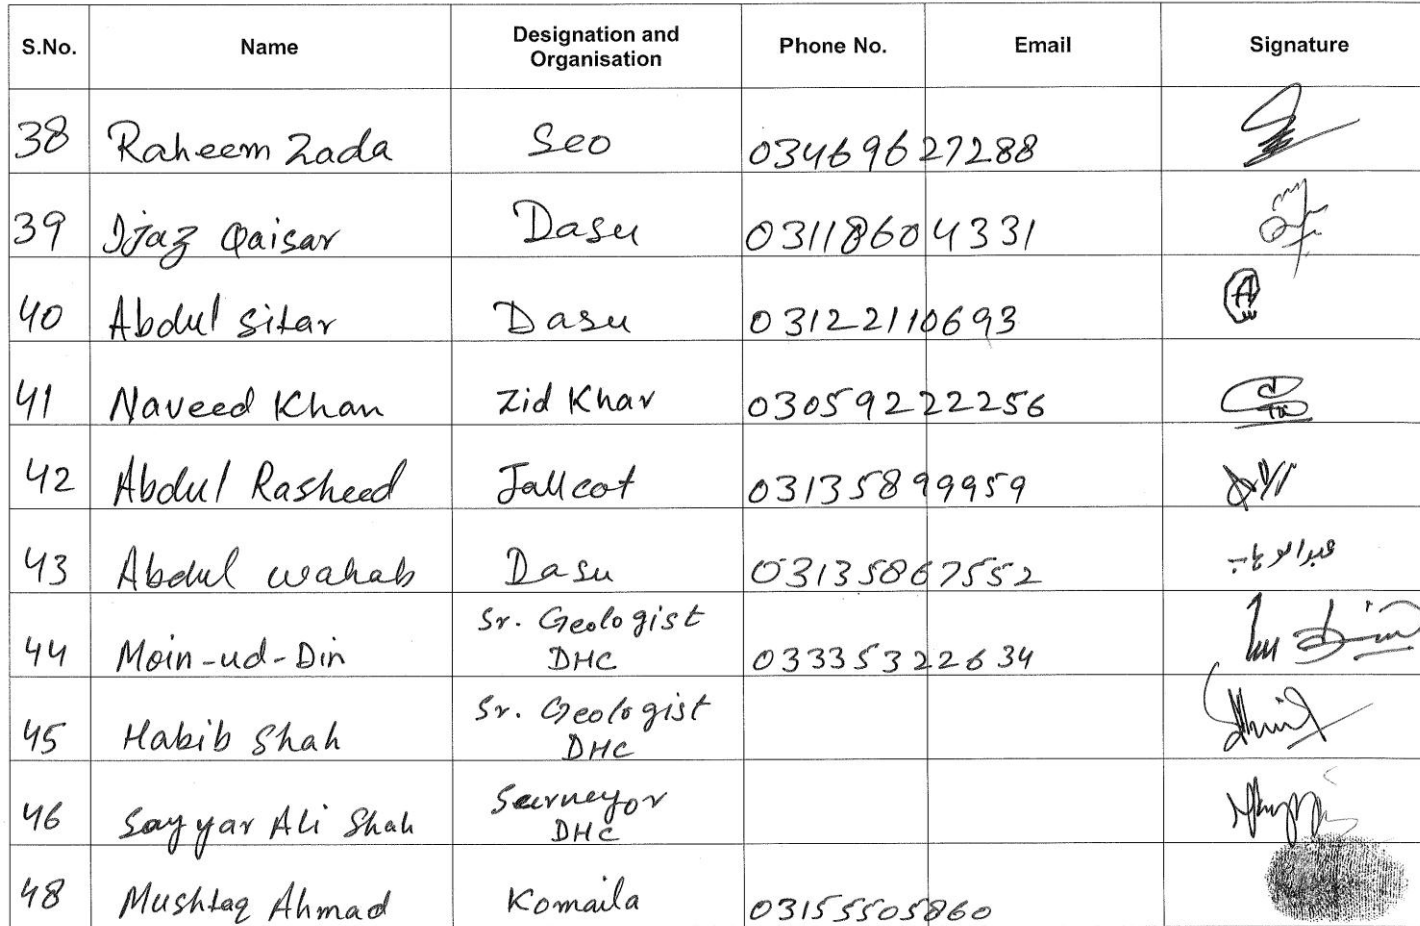 S.No. Name Designation and Organisation Phone No. Email Signature
38 Raheem Zada Seo 03469627288
39 Ijaz Qaisar Dasu 03118604331
40 Abdul sitar Dasu 03122110693
41 Naveed Khan Zid Khar 03059222256
42 Abdul Rasheed Jallcot 03135899959
43 Abdul wahab Dasu 03135867552 عبدالوہاب
44 Moin-ud-Din Sr. Geologist DHC 03335322634
45 Habib Shah Sr. Geologist DHC
46 Sayyar Ali Shah Surveyor DHC
48 Mushtaq Ahmad Komaila 03155505860